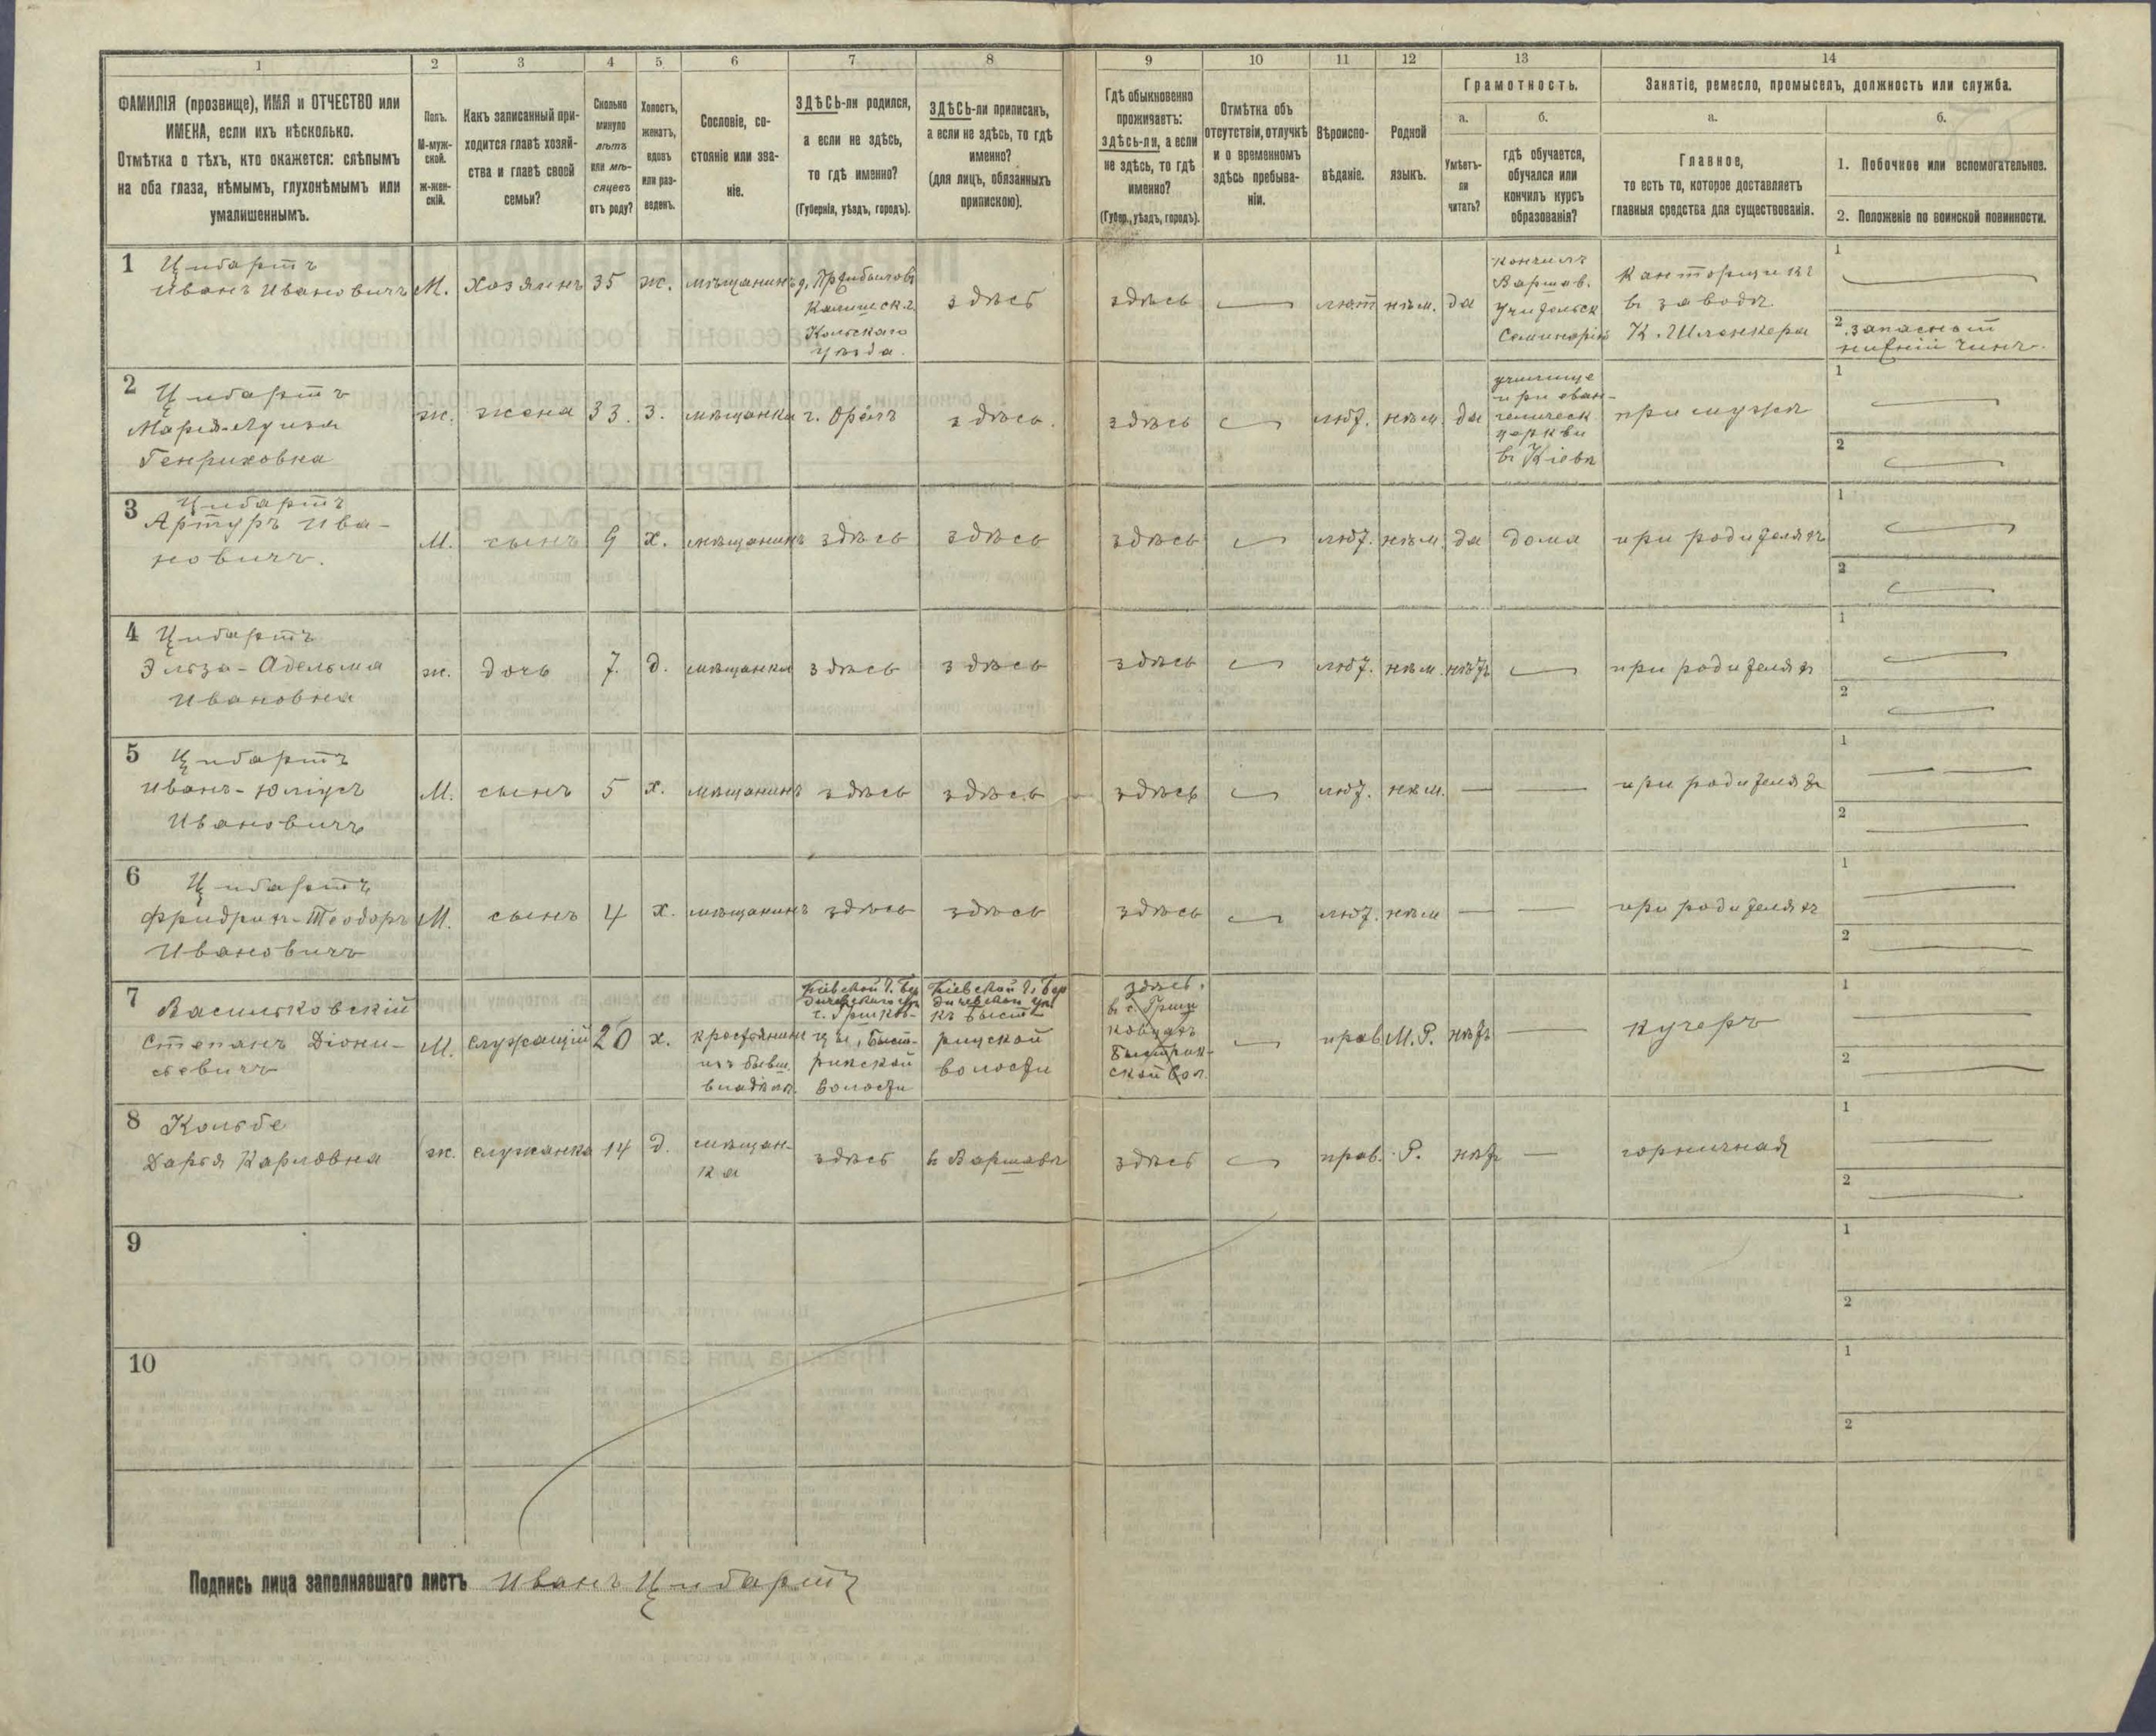 1 2 3 4 5 6 7 8 9 10 11 12 13 14
ФАМИЛІЯ (прозвище), ИМЯ и ОТЧЕСТВО или
ИМЕНА, если ихъ нѣсколько.
Отмѣтка о тѣхъ, кто окажется: слѣпымъ
на оба глаза, нѣмымъ, глухонѣмымъ или
умалишеннымъ.
Полъ.
М-муж-
ской.
ж-жен-
скій.
Какъ записанный при-
ходится главѣ хозяй-
ства и главѣ своей
семьи?
Сколько
минуло
лѣтъ
или мѣ-
сяцевъ
отъ роду?
Холостъ,
женатъ,
вдовъ
или раз-
веденъ.
Сословіе, со-
стояніе или зва-
ніе.
ЗДѢСЬ-ли родился,
а если не здѣсь,
то гдѣ именно?
(Губернія, уѣздъ, городъ).
ЗДѢСЬ-ли приписанъ,
а если не здѣсь, то гдѣ
именно?
(для лицъ, обязанныхъ
припискою).
Гдѣ обыкновенно
проживаетъ:
здѣсь-ли, а если
не здѣсь, то гдѣ
именно?
(Губер., уѣздъ, городъ).
Отмѣтка объ
отсутствіи, отлучкѣ
и о временномъ
здѣсь пребыва-
ніи.
Вѣроиспо-
вѣданіе.
Родной
языкъ.
Грамотность.
а.
Умѣетъ-
ли
читать?
б.
гдѣ обучается,
обучался или
кончилъ курсъ
образованія?
Занятіе, ремесло, промыселъ, должность или служба.
а.
Главное,
то есть то, которое доставляетъ
главныя средства для существованія.
б.
1. Побочное или вспомогательное.
2. Положеніе по воинской повинности.
1 Цибартъ
Иванъ Ивановичъ
М.
хозяинъ
35
ж.
мѣщанинъ
Калишск. г.
Кольскаго
уѣзда.
здѣсь
здѣсь
лют.
нѣм.
да
кончилъ
Варшав.
учительск
Семинарію
Канторщикъ
въ заводѣ
К. Шленкера
1
2 запасной
нижній чинъ.
2 Цибартъ
Марія-Луиза
Генриховна
ж.
жена
33.
з.
мѣщанка
г. Орелъ
здѣсь.
здѣсь
лют.
нѣм.
да
училище
при еван-
гелическ
церкви
въ Кіевѣ
при мужѣ
1
2
3 Цибартъ
Артуръ Ива-
новичъ.
М.
сынъ
9
х.
мѣщанинъ
здѣсь
здѣсь
здѣсь
лют.
нѣм.
да
дома
при родителяхъ
1
2
4 Цибартъ
Эльза-Адельма
Ивановна
ж.
дочь
7.
д.
мѣщанка
здѣсь
здѣсь
здѣсь
лют.
нѣм.
нѣтъ
при родителяхъ
1
2
5 Цибартъ
Иванъ-Юліусъ
Ивановичъ
М.
сынъ
5
х.
мѣщанинъ
здѣсь
здѣсь
здѣсь
лют.
нѣм.
при родителяхъ
1
2
6 Цибартъ
Фридрихъ-Теодоръ
Ивановичъ
М.
сынъ
4
х.
мѣщанинъ
здѣсь
здѣсь
здѣсь
лют.
нѣм
при родителяхъ
1
2
7 Васильковскій
Степанъ Діони-
сьевичъ
М.
служащій
20
х.
крестьянинъ
изъ бывш.
владѣл.
Кіевской г. Бер
дичевскаго у.
с. Гришков-
цы, Быст-
рикской
волости
Кіевской г. Бер
дичевскаго у.
къ Быст-
рицкой
волости
здѣсь.
въ с. Гриш
ковцахъ
Быстрик-
ской вол.
прав.
М. Р.
нѣтъ
кучеръ
1
2
8 Кольбе
Дарья Карловна
ж.
служанка
14
д.
мѣщан-
ка
здѣсь
въ Варшавѣ
здѣсь
прав.
Р.
нѣтъ
горничная
1
2
9
1
2
10
1
2
Подпись лица заполнявшаго листъ Иванъ Цибартъ